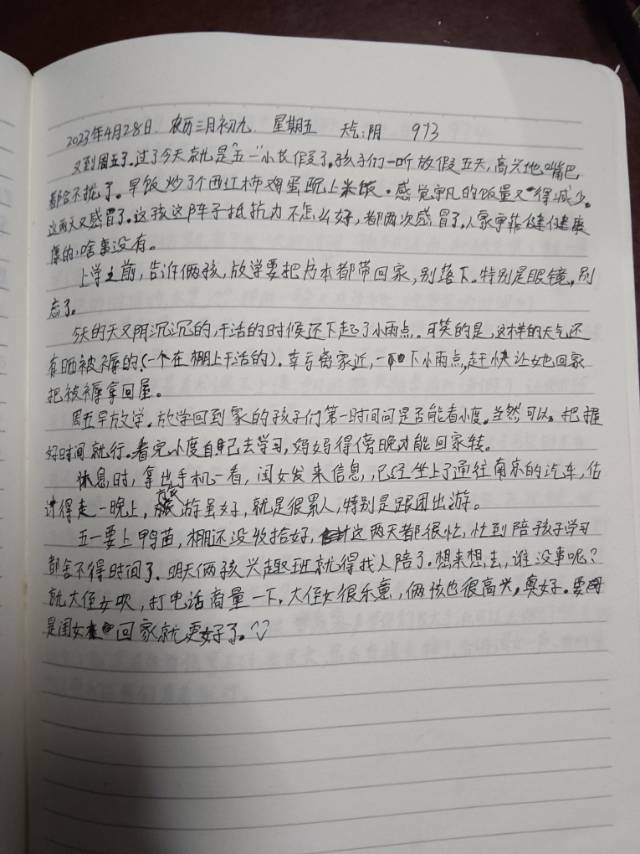 2023年4月28日 农历三月初九 星期五 天气:阴 973
又到周五了。过了今天就是"五一"小长假了。孩子们一听放假五天,高兴地嘴巴
都合不拢了。早饭炒了个西红柿鸡蛋配上米饭。感觉平凡的饭量又得减少。
这两天又感冒了。这孩这阵子抵抗力不怎么好,都两次感冒了,人家宇轩健健康
康的,啥事没有。
上学之前,告诉俩孩,放学要把书本都带回家,别落下。特别是眼镜,别
忘了。
今天的天又阴沉沉的,干活的时候还下起了小雨点。可笑的是,这样的天气还
有晒被褥的(一个在棚上干活的)。幸亏离家近,一下小雨点,赶快让她回家
把被褥拿回屋。
周五早放学。放学回到家的孩子们第一时间问是否能看小度。当然可以。把握
好时间就行。看完小度自己去学习,妈妈得傍晚才能回家转。
休息时,拿出手机一看,闺女发来信息,已经坐上了通往南京的汽车,估
计得走一晚上,旅游虽好,就是很累人,特别是跟团出游。
五一要上鸭苗,棚还没收拾好,这两天都很忙,忙到陪孩子学习
都舍不得时间了。明天俩孩兴趣班就得找人陪了。想来想去,谁没事呢?
就大侄女吹,打电话商量一下,大侄女很乐意,俩孩也很高兴,真好。要
是闺女回家就更好了。